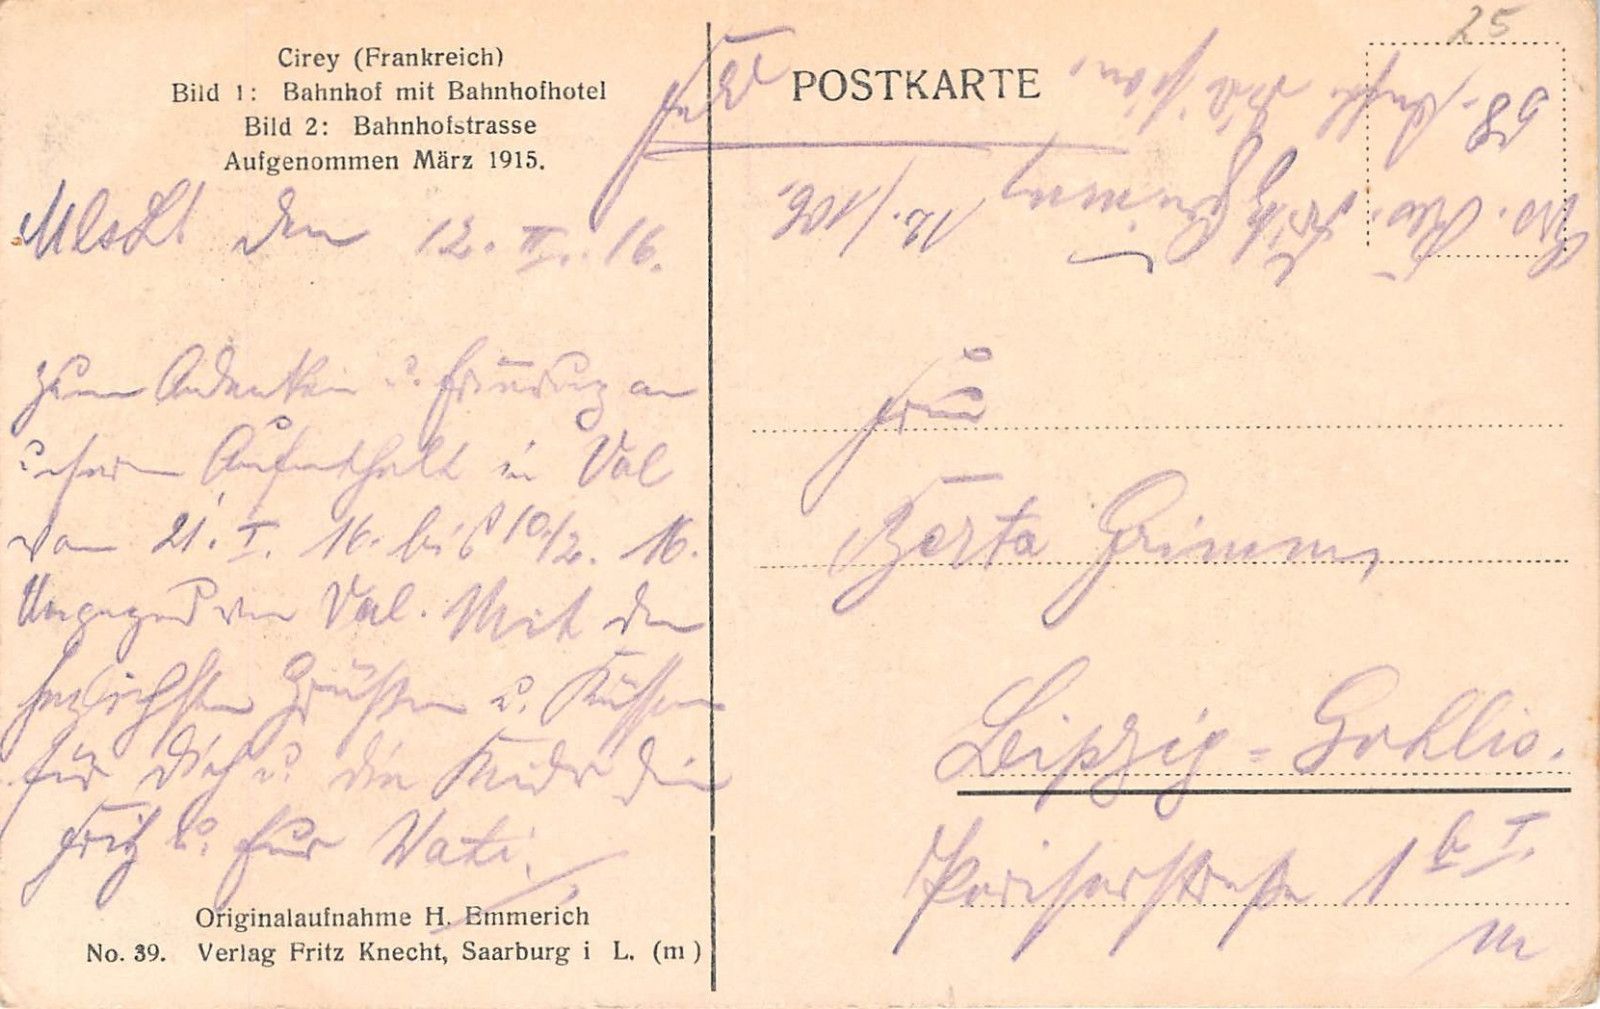 Cirey (Frankreich)
Bild 1: Bahnhof mit Bahnhofhotel
Bild 2: Bahnhofstrasse
Aufgenommen März 1915.
den 12. II. 16.
zum Andenken u. Erinnerung an
unsern Aufenthalt in Val
von 21. I. 16. bis 10/2. 16.
von Val. Mit den
herzlichsten Grüßen u. Küssen
für Dich u. die Kinder Dein
Fritz u. Euer Vati.
Originalaufnahme H. Emmerich
No. 39. Verlag Fritz Knecht, Saarburg i L. (m)
25
POSTKARTE
Fritz Grimm
Frau
Berta Grimm,
Leipzig-Gohlis.
1 b I.